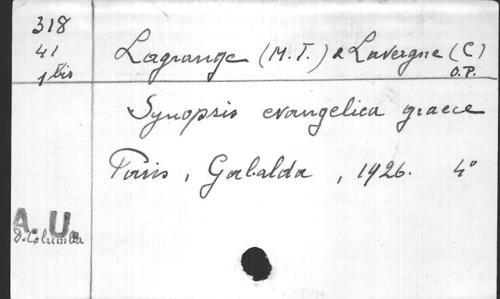 318
41
1 bis
Lagrange (M.T.) & Lavergne (C)
O.P.
Synopsis evangelica graece
Paris, Gabalda, 1926. 4°
A. U.
D. Columba